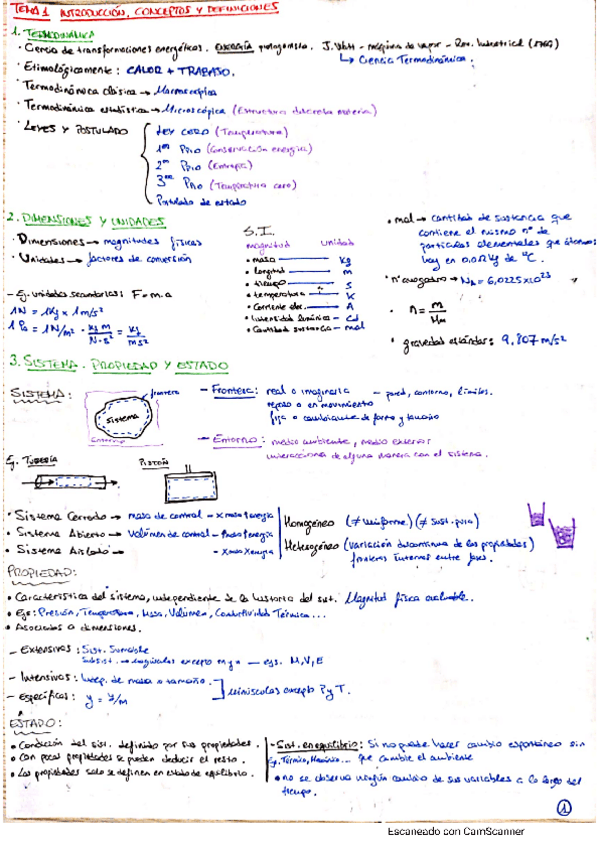 TEMA 1 INTRODUCCIÓN, CONCEPTOS Y DEFINICIONES
1. TERMODINÁMICA
· Ciencia de transformaciones energéticas. ENERGÍA protagonista. J. Watt - máquina de vapor - Rev. Industrial
↳ Ciencia Termodinámica.
· Etimológicamente: CALOR + TRABAJO.
· Termodinámica clásica → Macroscópica
· Termodinámica estadística → Microscópica (Estructura discreta materia)
· LEYES Y POSTULADO
LEY CERO (Temperatura)
1er PPIO (Conservación energía)
2º PPIO (Entropía)
3er PPIO (Temperatura cero)
Postulado de estado
2. DIMENSIONES Y UNIDADES
· Dimensiones → magnitudes físicas
· Unidades → factores de conversión
- Ej. unidades secundarias: F = m.a
1N = 1Kg x 1m/s²
1 Pa = 1N/m² · kg m / N·s² = kg / m s²
S.I.
magnitud unidad
· masa Kg
· longitud m
· tiempo s
· temperatura K
· Corriente elec. A
· intensidad lumínica Cd
· Cantidad sustancia mol
· mol → cantidad de sustancia que
contiene el mismo nº de
partículas elementales que átomos
hay en 0,012 kg de ¹²C.
· nº avogadro → NA = 6,0225x10²³
· n = m / Mm
· gravedad estándar: 9,807 m/s²
3. SISTEMA. PROPIEDAD Y ESTADO
SISTEMA:
frontera
Sistema
Entorno
- Frontera: real o imaginaria - pared, contorno, límites.
reposo o en movimiento
fija o cambiante de forma y tamaño
- Entorno: medio ambiente, medio exterior
interacciona de alguna manera con el sistema.
Ej. TUBERÍA PISTÓN
· Sistema Cerrado → masa de control - x masa energía
· Sistema Abierto → Volumen de control - masa energía
· Sistema Aislado → - x masa x energía
Homogéneo (≠ uniforme) (≠ sust. pura)
Heterogéneo (variación discontinua de las propiedades)
fronteras internas entre fases.
PROPIEDAD:
• Característica del sistema, independiente de la historia del sist. Magnitud física evaluable.
• Ejs: Presión, Temperatura, Masa, Volumen, Conductividad Térmica...
• Asociadas a dimensiones.
- EXTENSIVAS: Sist. Sumable
Subsist. → mayúsculas excepto m y n - ejs. M, V, E
- Intensivas: Indep. de masa o tamaño.
- Específicas: y = Y/m
minúsculas excepto P y T.
ESTADO:
• Condición del sist. definido por sus propiedades.
• Con pocas propiedades se pueden deducir el resto.
• Las propiedades solo se definen en estado de equilibrio.
- Sist. en equilibrio: Si no puede hacer cambio espontáneo sin
Ej. Térmico, Mecánico... que cambie el ambiente
• no se observa ningún cambio de sus variables a lo largo del
tiempo.
1
Escaneado con CamScanner